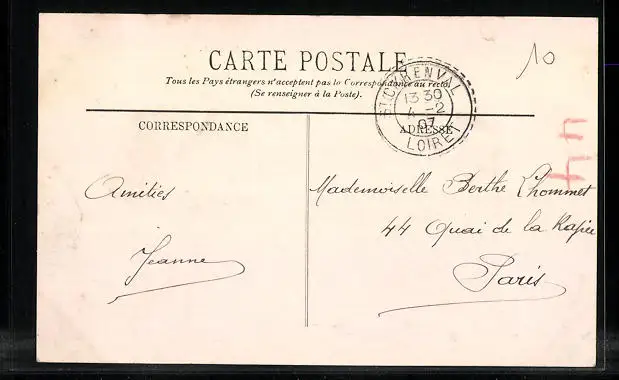 10
CARTE POSTALE
Tous les Pays étrangers n'acceptent pas la Correspondance au recto.
(Se renseigner à la Poste).
ST CYR EN VAL
13 30
4 - 2
07
LOIRET
CORRESPONDANCE
ADRESSE
44
Amitiés
Jeanne
Mademoiselle Berthe Lhommet
44 Quai de la Rapée
Paris